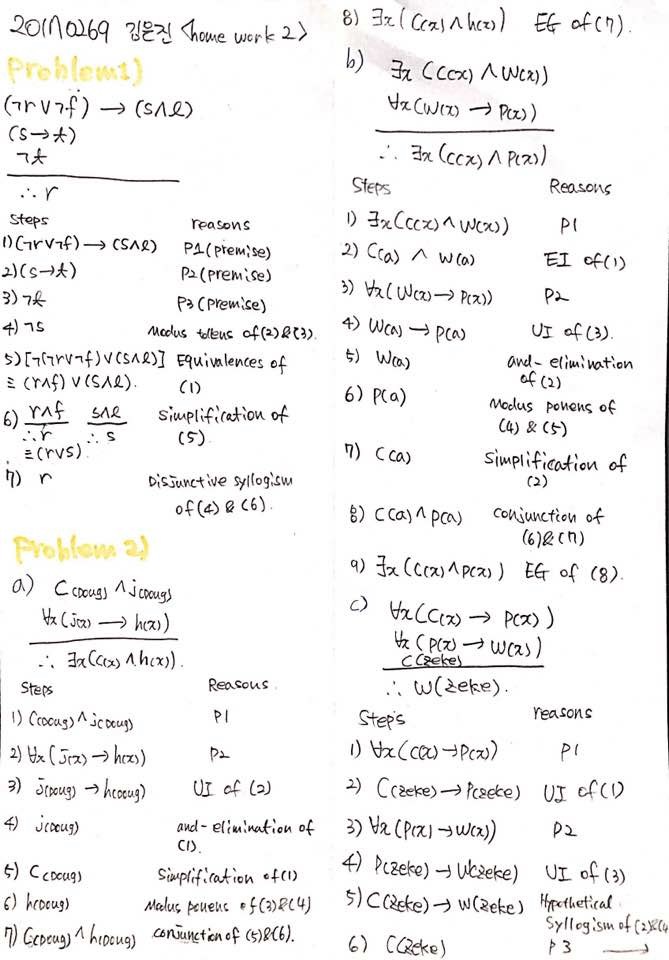 201710269 김은진 <home work 2>
Problem 1)
(¬r∨¬f) → (s∧l)
(s→t)
¬t
∴ r
Steps reasons
1) (¬r∨¬f) → (s∧l) P1 (premise)
2) (s→t) P2 (premise)
3) ¬t P3 (premise)
4) ¬s Modus tollens of (2)&(3).
5) [¬(¬r∨¬f)∨(s∧l)] Equivalences of
≡ (r∧f) ∨ (s∧l). (1)
6) r∧f s∧l Simplification of
∴ r ∴ s (5).
≡(r∨s).
7) r Disjunctive syllogism
of (4) & (6).
Problem 2)
a) C(Doug) ∧ j(Doug)
∀x (j(x) → h(x))
∴ ∃x(C(x) ∧ h(x)).
Steps Reasons
1) C(Doug) ∧ j(Doug) P1
2) ∀x (j(x) → h(x)) P2
3) j(Doug) → h(Doug) UI of (2)
4) j(Doug) and-elimination of
(1).
5) C(Doug) Simplification of (1)
6) h(Doug) Modus ponens of (3)&(4)
7) C(Doug) ∧ h(Doug) conjunction of (5)&(6).
8) ∃x (C(x) ∧ h(x)) EG of (7).
b) ∃x (C(x) ∧ W(x))
∀x (W(x) → P(x))
∴ ∃x (C(x) ∧ P(x))
Steps Reasons
1) ∃x (C(x) ∧ W(x)) P1
2) C(a) ∧ W(a) EI of (1)
3) ∀x (W(x) → P(x)) P2
4) W(a) → P(a) UI of (3).
5) W(a) and-elimination
of (2)
6) P(a) Modus ponens of
(4) & (5)
7) C(a) Simplification of
(2)
8) C(a) ∧ P(a) conjunction of
(6)&(7)
9) ∃x (C(x) ∧ P(x)) EG of (8).
c) ∀x (C(x) → P(x))
∀x (P(x) → W(x))
C(zeke)
∴ W(zeke).
Steps reasons
1) ∀x (C(x) → P(x)) P1
2) C(zeke) → P(zeke) UI of (1)
3) ∀x (P(x) → W(x)) P2
4) P(zeke) → W(zeke) UI of (3)
5) C(zeke) → W(zeke) Hypothetical
Syllogism of (2)&(4
6) C(zeke) P3 →